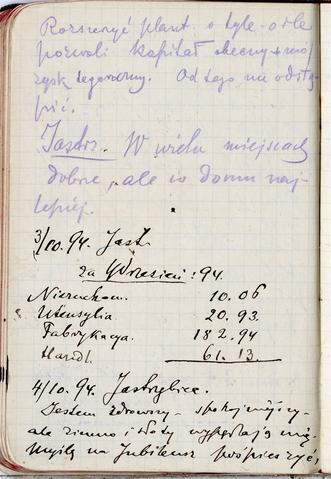 Rozszerzyć plant. o tyle o ile
pozwoli kapitał obecny + mój
zysk tegoroczny. Od tego nie odstą-
pić.
Jastrz. W wielu miejscach
dobrze, ale w domu naj-
lepiej.
3/10.94. Jast.
za Wrzesień :94.
Nieruchom. 10.06
Utensylia. 20.93.
Fabrykacya. 182.94
Handl. 61.13.
4/10.94. Jastrzębice.
Jestem zdrowszy – spokojniejszy –
ale zimno i słoty wypędzają mię.
Myślę na Jubileusz pośpieszyć,